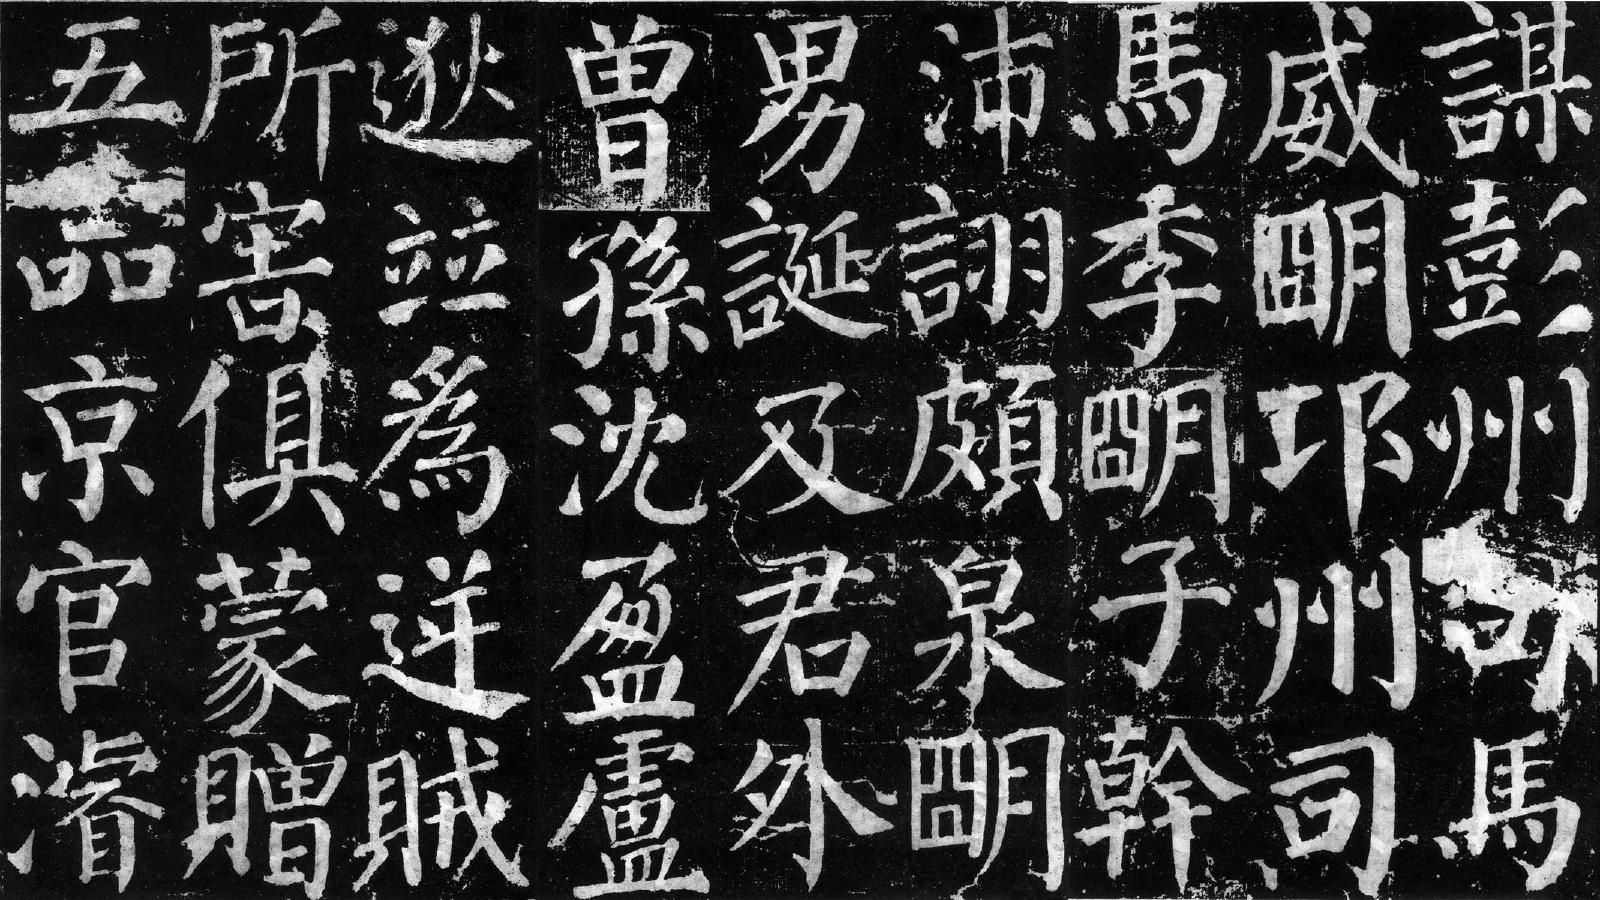 謀彭州司馬
威朙邛州司
馬季朙子幹
沛詡頗泉朙
男誕及君外
曾孫沈盈盧
逖並爲逆賊
所害俱蒙贈
五品京官濬